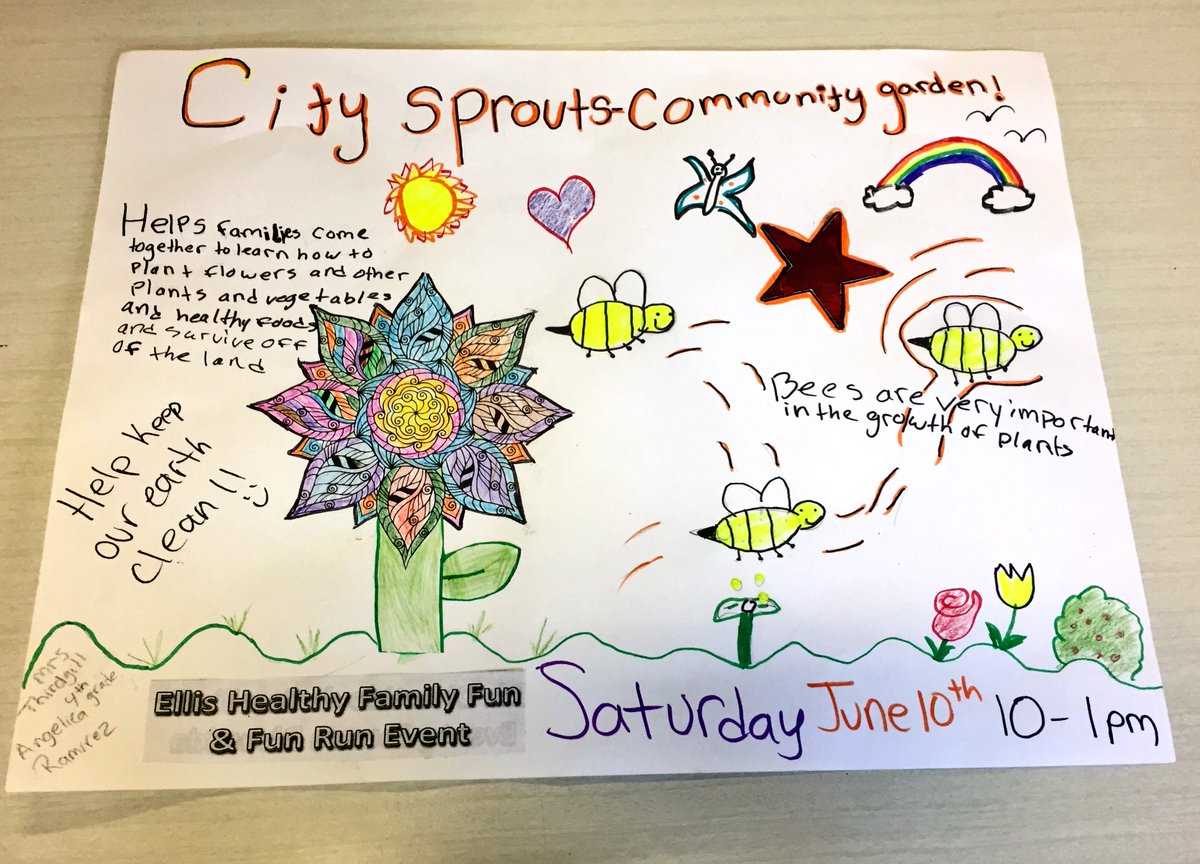 City Sprouts-Community garden!
Helps families come
together to learn how to
plant flowers and other
plants and vegetables
and healthy foods
and survive off
of the land
Bees are very important
in the growth of plants
Help keep
our earth
clean!!
Mrs
Thirdgill
4th
Angelica grade
Ramirez
Ellis Healthy Family Fun
& Fun Run Event
Saturday June 10th 10-1pm